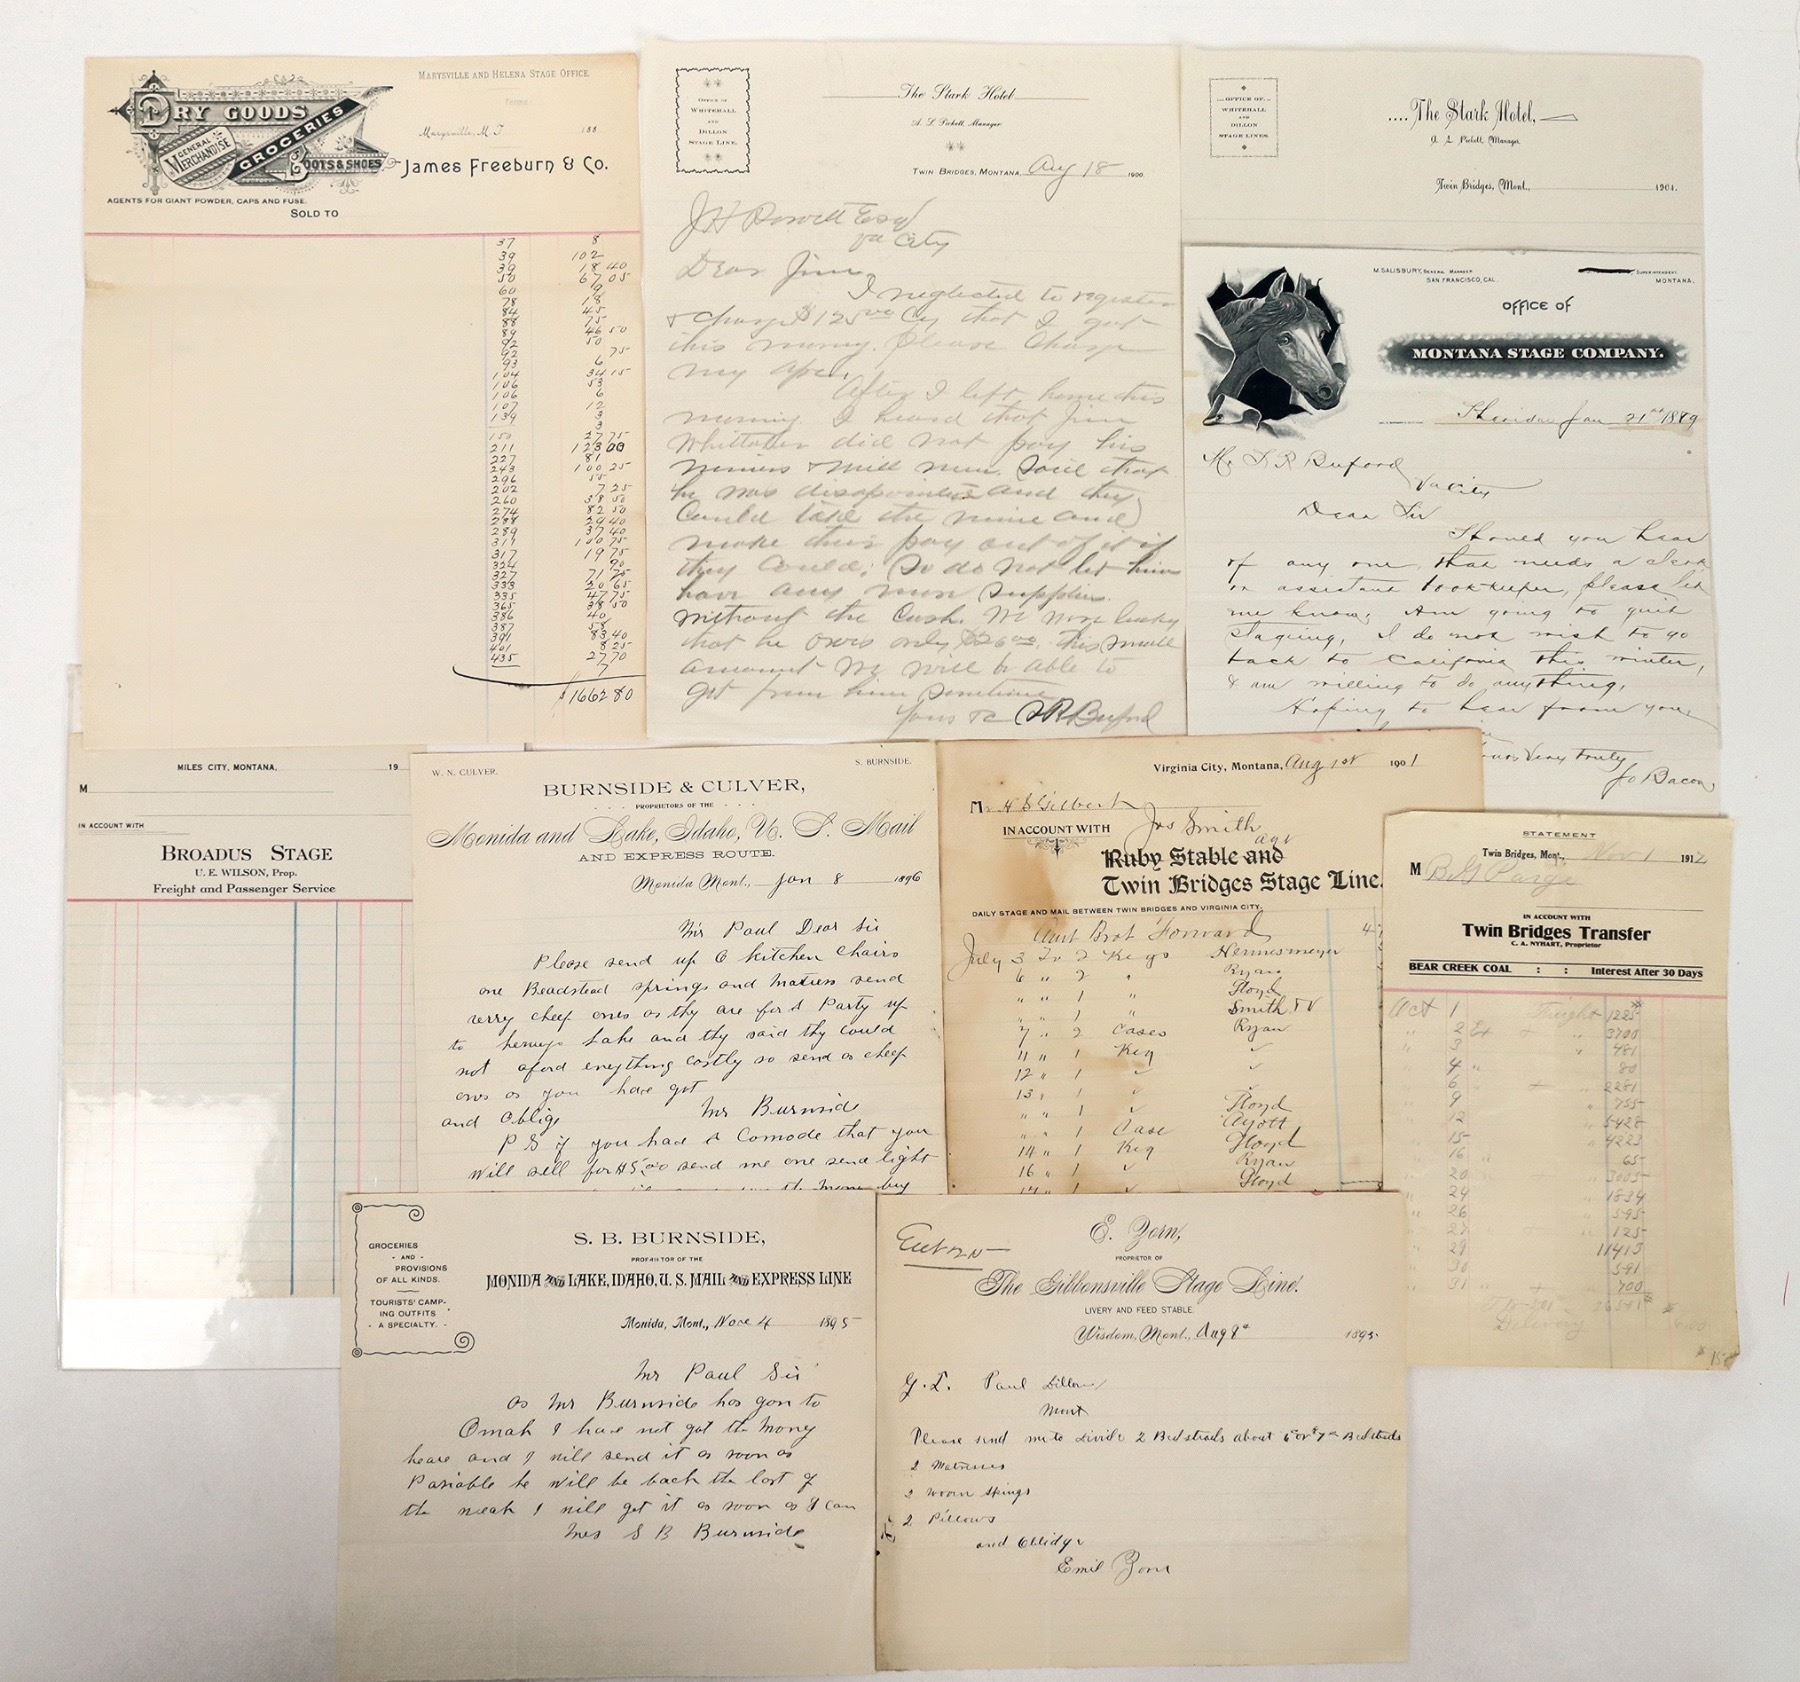 MARYSVILLE AND HELENA STAGE OFFICE.
DRY GOODS
GENERAL MERCHANDISE
GROCERIES
BOOTS & SHOES
Terms
Marysville, M. T. 188
James Freeburn & Co.
AGENTS FOR GIANT POWDER, CAPS AND FUSE.
SOLD TO
37 8
39 102
39 18 40
50 67 05
60 9
78 18
84 45
88 75
89 46 50
92 50
92 75
93 6
104 34 15
106 53
106 6
107 12
134 3
150 27 75
211 123 00
227 81
243 100 25
296 55
202 7 25
260 38 50
274 82 50
288 29 40
289 37 40
311 100 75
317 19 75
324 90
327 71 75
333 20 65
335 47 75
365 38 50
386 40
387 58
391 83 40
401 8 25
435 27 70
$1662 80
OFFICE OF
WHITEHALL
AND
DILLON
STAGE LINE.
The Stark Hotel
A. L. Pickett, Manager
TWIN BRIDGES, MONTANA, Aug 18 1900.
Va City
Dear Jim,
I neglected to register
& charge $125 00 Cy that I got
this morning. Please Charge
my
After I left home this
morning I heard that Jim
Whittaker did not pay his
miners & mill men. Said that
he was disapointed and they
Could take the mine and
make their pay out of it if
they Could; So do not let him
have any more supplies
without the Cash. We are lucky
that he owes only $26 00, this small
amount we will be able to
get from him sometime
Yours &c S R Buford
OFFICE OF
WHITEHALL
AND
DILLON
STAGE LINES.
.... The Stark Hotel,
A. L. Pickett, Manager.
Twin Bridges, Mont., 1901.
M. SALISBURY, GENERAL MANAGER
SAN FRANCISCO, CAL.
SUPERINTENDENT.
MONTANA.
OFFICE OF
MONTANA STAGE COMPANY.
Sheridan Jan 21st 1889
Mr S R Buford
Va City
Dear Sir
Should you hear
of any one, that needs a clerk
or assistant bookkeeper, please let
me know, Am going to quit
staging, I do not wish to go
back to California this winter,
& am willing to do anything,
Hoping to hear from you,
Yours Very truly
Jo Bacon
MILES CITY, MONTANA, 19
M
IN ACCOUNT WITH
BROADUS STAGE
U. E. WILSON, Prop.
Freight and Passenger Service
W. N. CULVER. S. BURNSIDE.
BURNSIDE & CULVER,
PROPRIETORS OF THE
Monida and Lake, Idaho, U. S. Mail
AND EXPRESS ROUTE.
Monida Mont., Jan 8 1896
Mr Paul Dear Sir
Please send up 6 kitchen chairs
one Beadstead springs and matress send
verry cheep ones as thy are for A Party up
to henrys Lake and thy said thy could
not aford enything costly so send as cheep
ons as you have got
and oblige Mr Burnside
P S if you had A Comode that you
will sell for $5.00 send me one send light
Virginia City, Montana, Aug 1st 1901
M r H S Gilbert
IN ACCOUNT WITH Jas Smith
agt
Ruby Stable and
Twin Bridges Stage Line.
DAILY STAGE AND MAIL BETWEEN TWIN BRIDGES AND VIRGINIA CITY.
Amt Brot Forward 4
July 3 To 2 Kegs Hennesmeyer
6 " 2 " Ryan
" " 1 " Floyd
" " 1 " Smith
7 " 2 Cases Ryan
11 " 1 Keg ✓
12 " 1 ✓ ✓
13 " 1 ✓ Floyd
" " 1 ✓ Ayott
" " 1 Case Floyd
14 " 1 Keg Ryan
16 " 1 ✓ Floyd
STATEMENT
Twin Bridges, Mont., Nov 1 1912
M
IN ACCOUNT WITH
Twin Bridges Transfer
C. A. NYHART, Proprietor
BEAR CREEK COAL : : Interest After 30 Days
Oct 1 Freight 1225
" 2 Ex + " 3700
" 3 " 481
" 4 " 80
" 6 " + " 2281
" 9 " 755
12 " 5428
15 " 4223
16 " 65
20 " 3005
24 " 1834
26 " 595
27 " 125
29 11413
30 591
31 " + 700
Delivery
GROCERIES
- AND -
PROVISIONS
OF ALL KINDS.
TOURISTS' CAMP-
ING OUTFITS
- A SPECIALTY. -
S. B. BURNSIDE,
PROPRIETOR OF THE
MONIDA AND LAKE, IDAHO, U. S. MAIL AND EXPRESS LINE
Monida, Mont., Nove 4 1895
Mr Paul Sir
as Mr Burnside has gon to
Omah I have not got the mony
heare and I will send it as soon as
Pasiable he will be back the last of
the weak I will get it as soon as I can
Mrs S B Burnside
E. Zorn,
PROPRIETOR OF
The Gibbonsville Stage Line.
LIVERY AND FEED STABLE.
Wisdom, Mont., Aug 8th 1895
G. T. Paul Dillon
Mont
Please send me to divide 2 Bedsteads about 6 or $7 00 Bedsteads
2 Matresses
2 woven springs
2 Pillows
and Oblidge
Emil Zorn